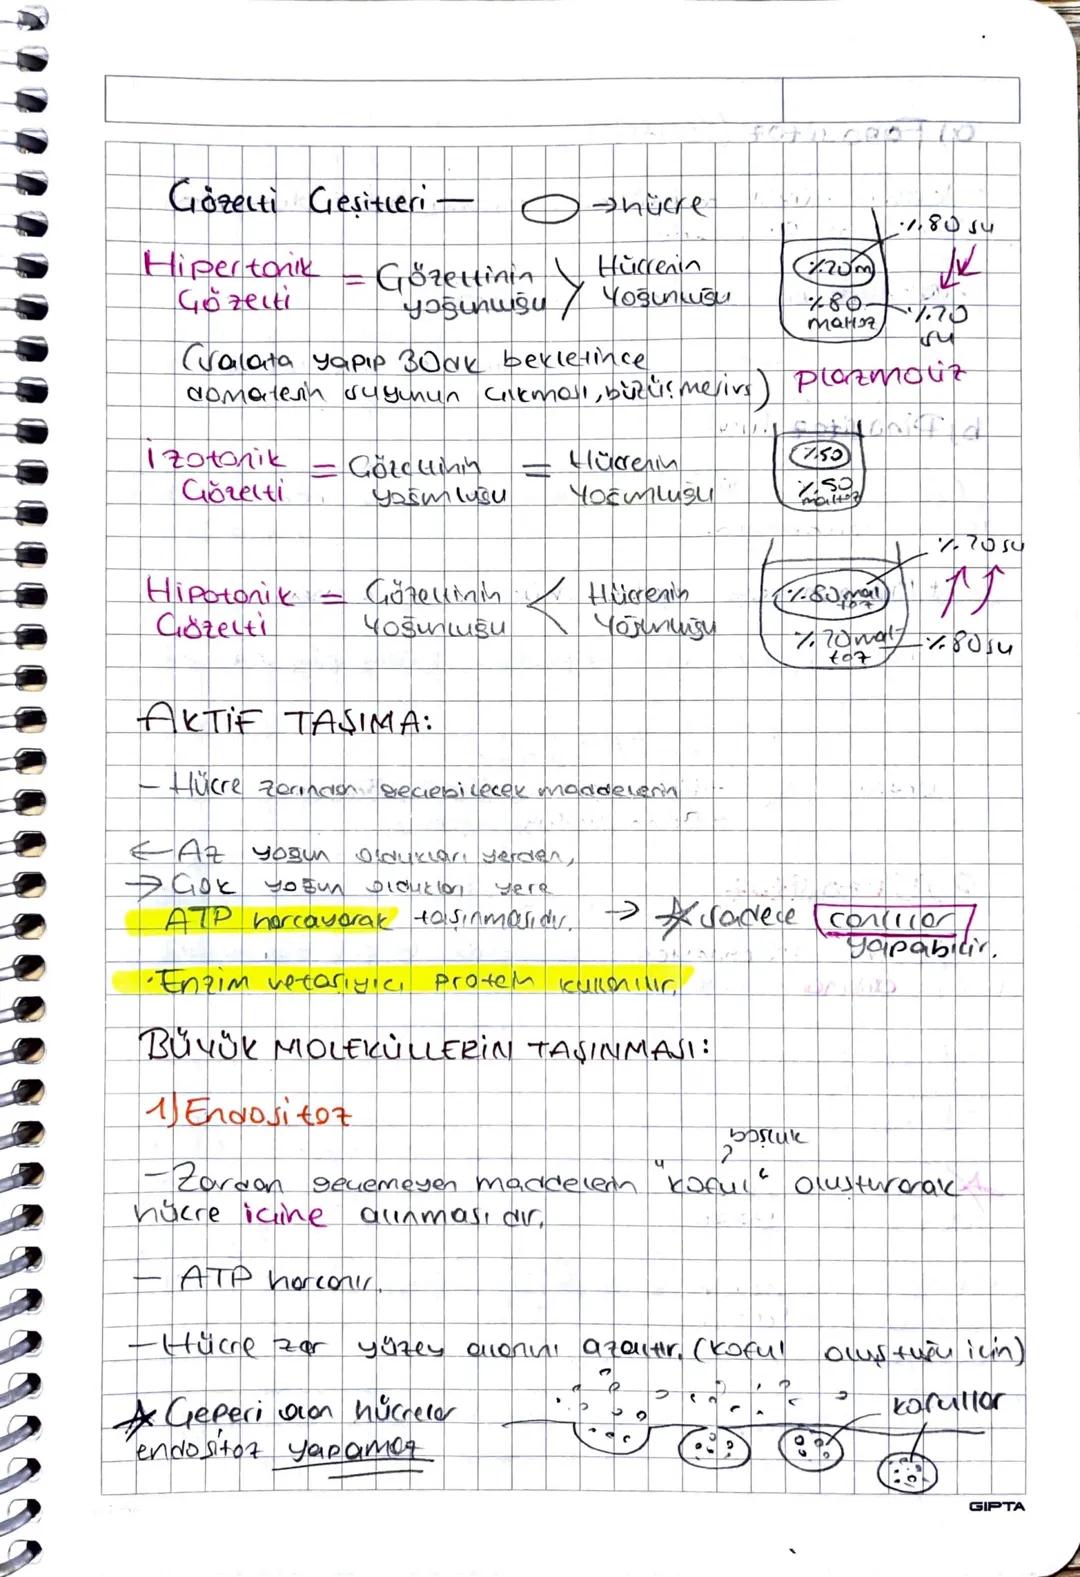 Çözelti Çeşitleri — → hücre
Hipertonik = Çözeltinin > Hücrenin
Çözelti yoğunluğu Yoğunluğu
%80 su
%20m
%80 maltoz
%20 su
(Salata yapıp 30dk bekletince
domatesin suyunun çıkması, büzüşmesi vs) Plazmoliz
İzotonik = Çözeltinin = Hücrenin
Çözelti yoğunluğu Yoğunluğu
%50
%50
maltoz
Hipotonik = Çözeltinin < Hücrenin
Çözelti Yoğunluğu Yoğunluğu
%20 su
%80 mal
toz
%20 mal
toz
%80 su
AKTİF TAŞIMA:
— Hücre zarından geçebilecek maddelerin
← Az yoğun oldukları yerden,
→ Çok yoğun oldukları yere
ATP harcayarak taşınmasıdır. → ☆ sadece canlılar
yapabilir.
·Enzim ve taşıyıcı protein kullanılır.
BÜYÜK MOLEKÜLLERİN TAŞINMASI:
1) Endositoz
boşluk
— Zardan geçemeyen maddelerin "koful" oluşturarak
hücre içine alınmasıdır.
— ATP harcanır.
— Hücre zar yüzey alanını azaltır. (koful oluştuğu için)
☆ Çeperi olan hücreler
endositoz yapamaz
kofullar
GIPTA